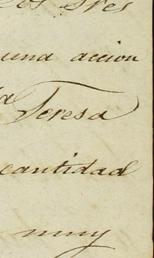 los Sres
una accion
la
Teresa
cantidad
muy